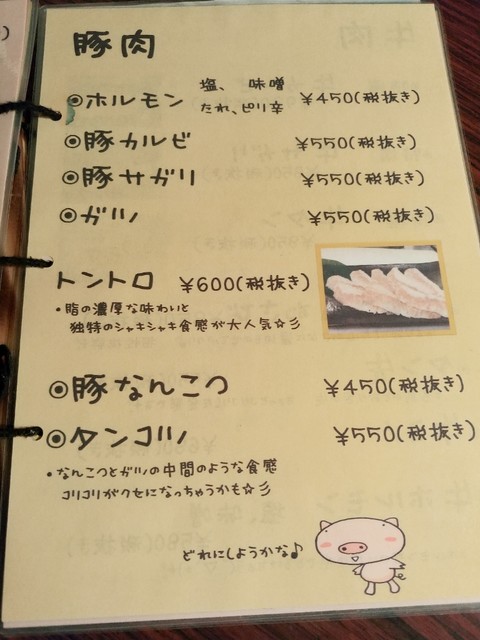 豚肉
◎ホルモン 塩、味噌 たれ、ピリ辛 ¥450(税抜き)
◎豚カルビ ¥550(税抜き)
◎豚サガリ ¥550(税抜き)
◎ガツ ¥550(税抜き)
トントロ ¥600(税抜き)
・脂の濃厚な味わいと
独特のシャキシャキ食感が大人気☆彡
◎豚なんこつ ¥450(税抜き)
◎タンコツ ¥550(税抜き)
・なんこつとガツの中間のような食感
コリコリがクセになっちゃうかも☆彡
どれにしようかな♪